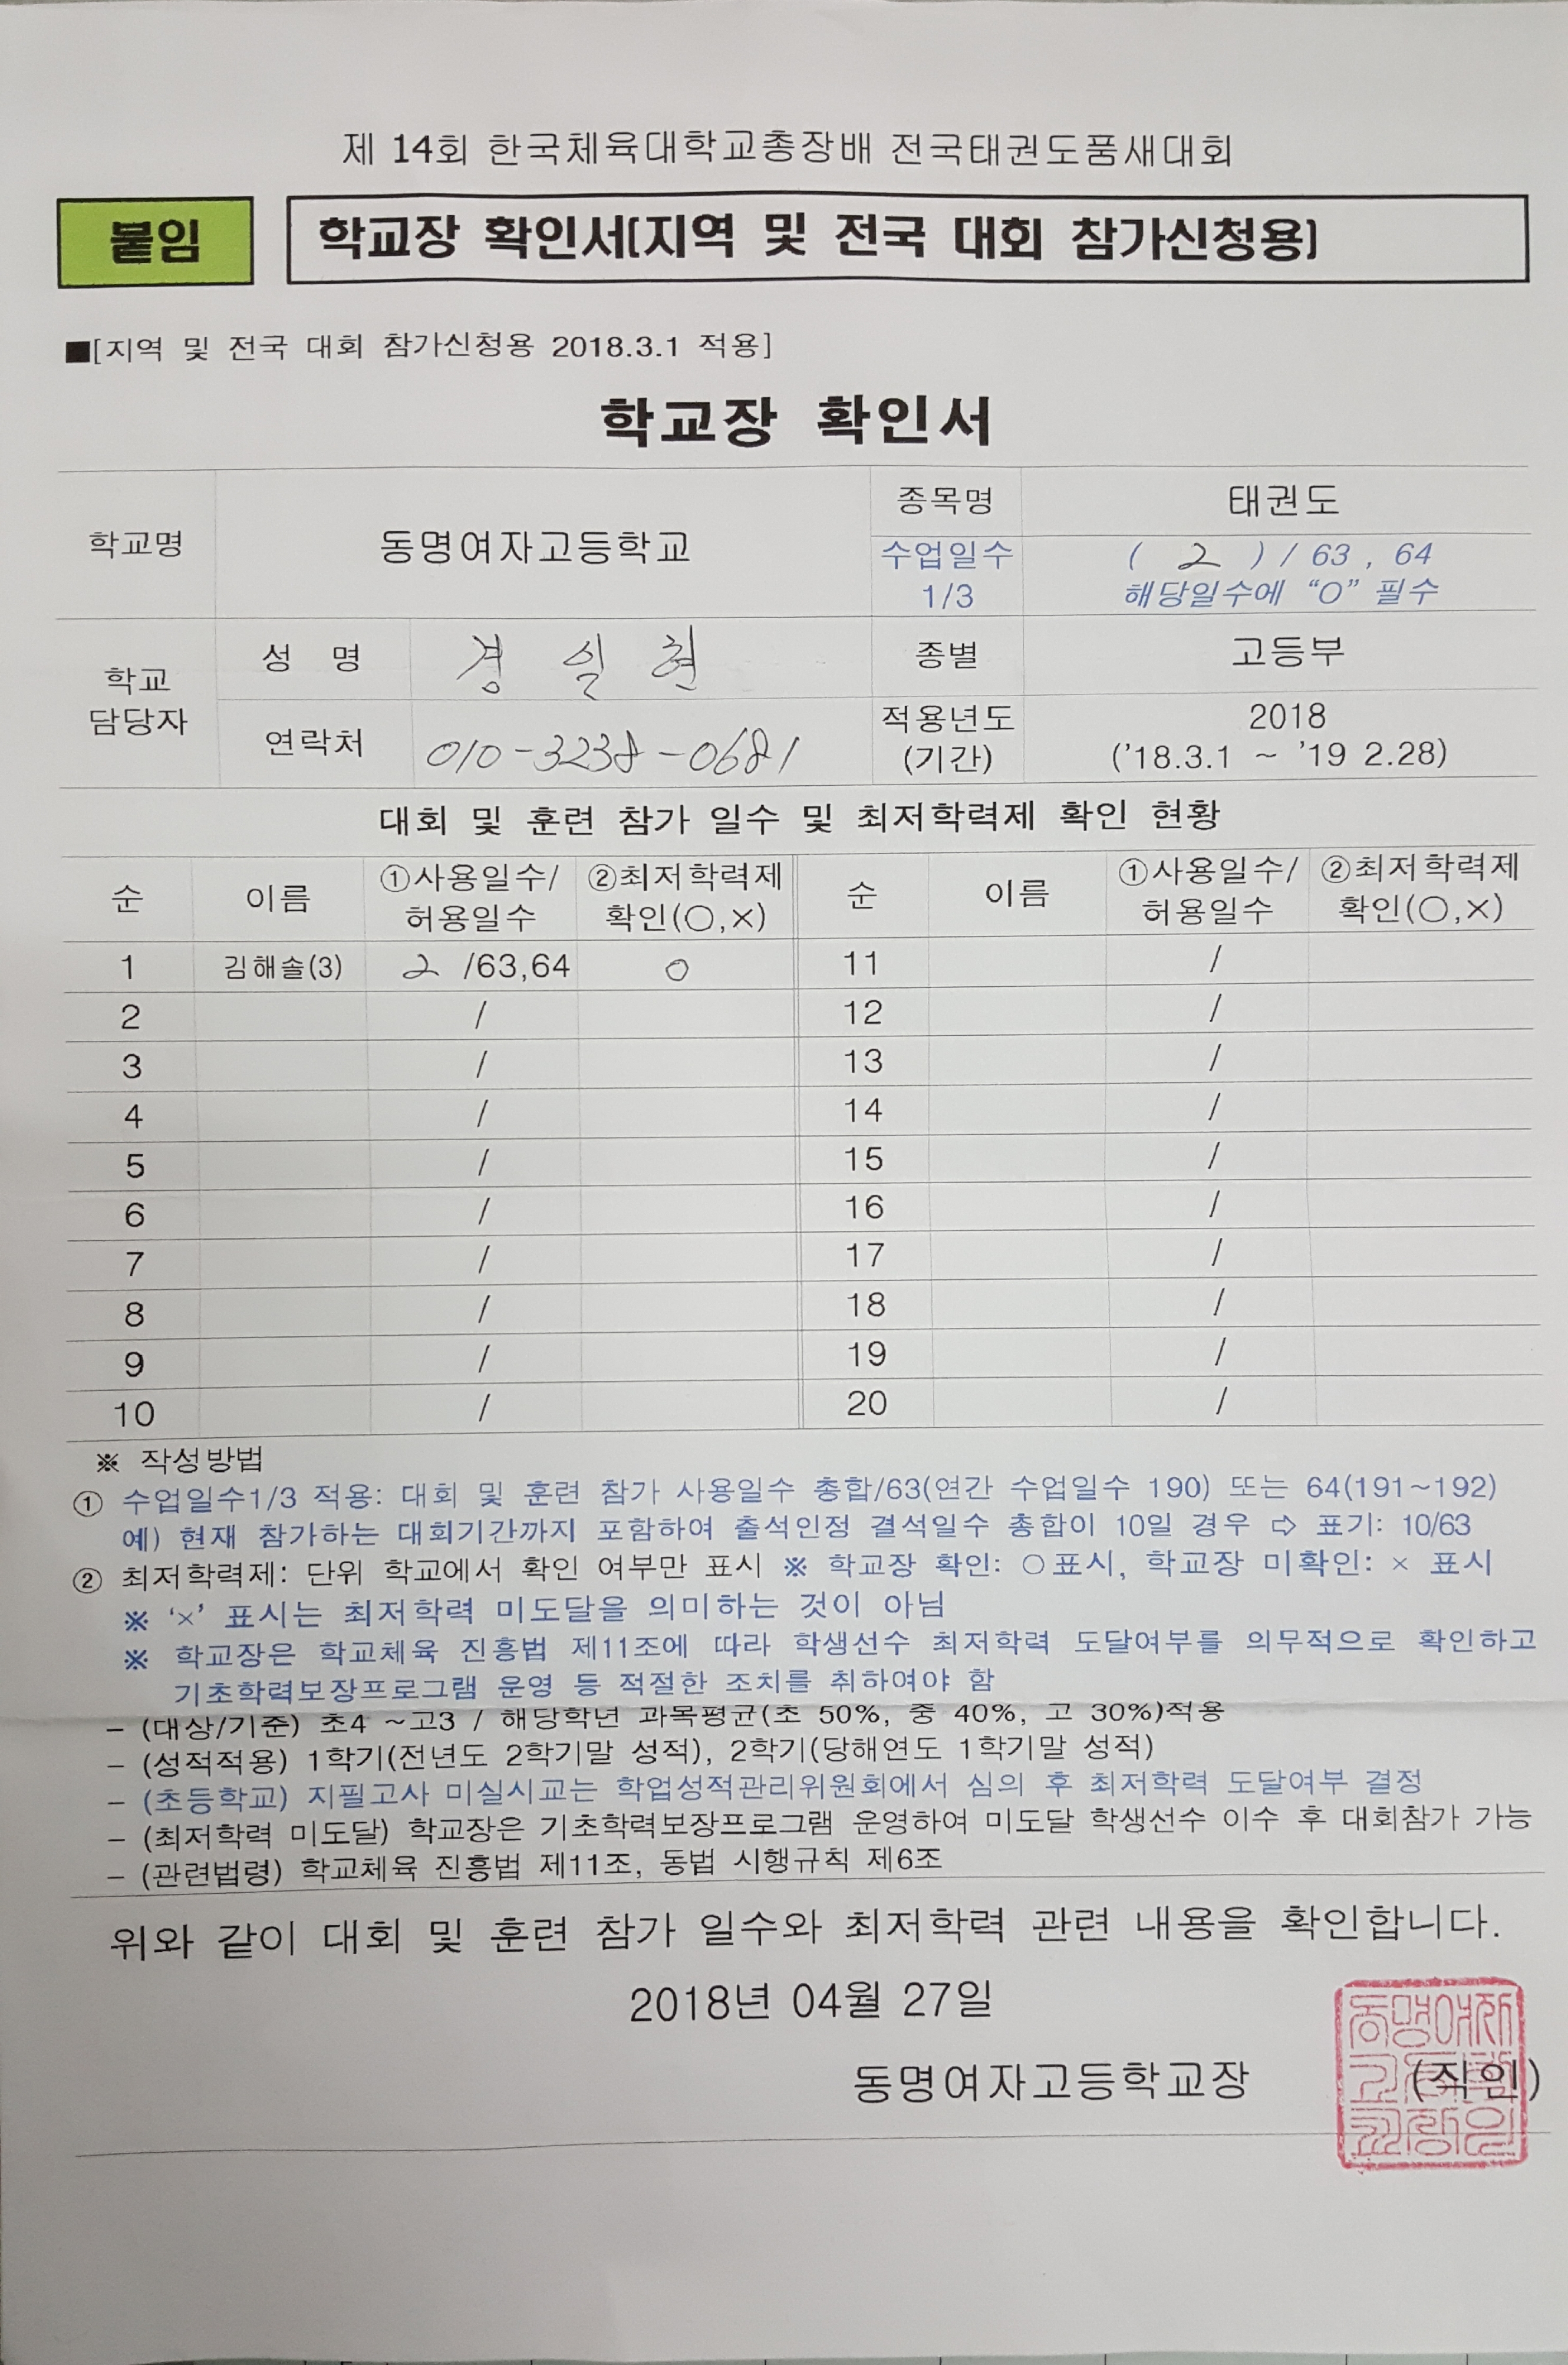 제 14회 한국체육대학교총장배 전국태권도품새대회
붙임 학교장 확인서(지역 및 전국 대회 참가신청용)
■[지역 및 전국 대회 참가신청용 2018.3.1 적용]
학교장 확인서
학교명 동명여자고등학교 종목명 태권도
수업일수 1/3 ( 2 ) / 63 , 64
해당일수에 “O” 필수
학교 담당자 성 명 경일현 종별 고등부
연락처 010-3238-0681 적용년도 (기간) 2018
('18.3.1 ~ '19 2.28)
대회 및 훈련 참가 일수 및 최저학력제 확인 현황
순 이름 ①사용일수/허용일수 ②최저학력제 확인(○,×) 순 이름 ①사용일수/허용일수 ②최저학력제 확인(○,×)
1 김해솔(3) 2 /63,64 ○ 11 /
2 / 12 /
3 / 13 /
4 / 14 /
5 / 15 /
6 / 16 /
7 / 17 /
8 / 18 /
9 / 19 /
10 / 20 /
※ 작성방법
① 수업일수1/3 적용: 대회 및 훈련 참가 사용일수 총합/63(연간 수업일수 190) 또는 64(191~192)
예) 현재 참가하는 대회기간까지 포함하여 출석인정 결석일수 총합이 10일 경우 ⇨ 표기: 10/63
② 최저학력제: 단위 학교에서 확인 여부만 표시 ※ 학교장 확인: ○표시, 학교장 미확인: × 표시
※ ‘×’ 표시는 최저학력 미도달을 의미하는 것이 아님
※ 학교장은 학교체육 진흥법 제11조에 따라 학생선수 최저학력 도달여부를 의무적으로 확인하고
기초학력보장프로그램 운영 등 적절한 조치를 취하여야 함
- (대상/기준) 초4 ~고3 / 해당학년 과목평균(초 50%, 중 40%, 고 30%)적용
- (성적적용) 1학기(전년도 2학기말 성적), 2학기(당해연도 1학기말 성적)
- (초등학교) 지필고사 미실시교는 학업성적관리위원회에서 심의 후 최저학력 도달여부 결정
- (최저학력 미도달) 학교장은 기초학력보장프로그램 운영하여 미도달 학생선수 이수 후 대회참가 가능
- (관련법령) 학교체육 진흥법 제11조, 동법 시행규칙 제6조
위와 같이 대회 및 훈련 참가 일수와 최저학력 관련 내용을 확인합니다.
2018년 04월 27일
동명여자고등학교장 (직인)
동명여자
고등학
교장인